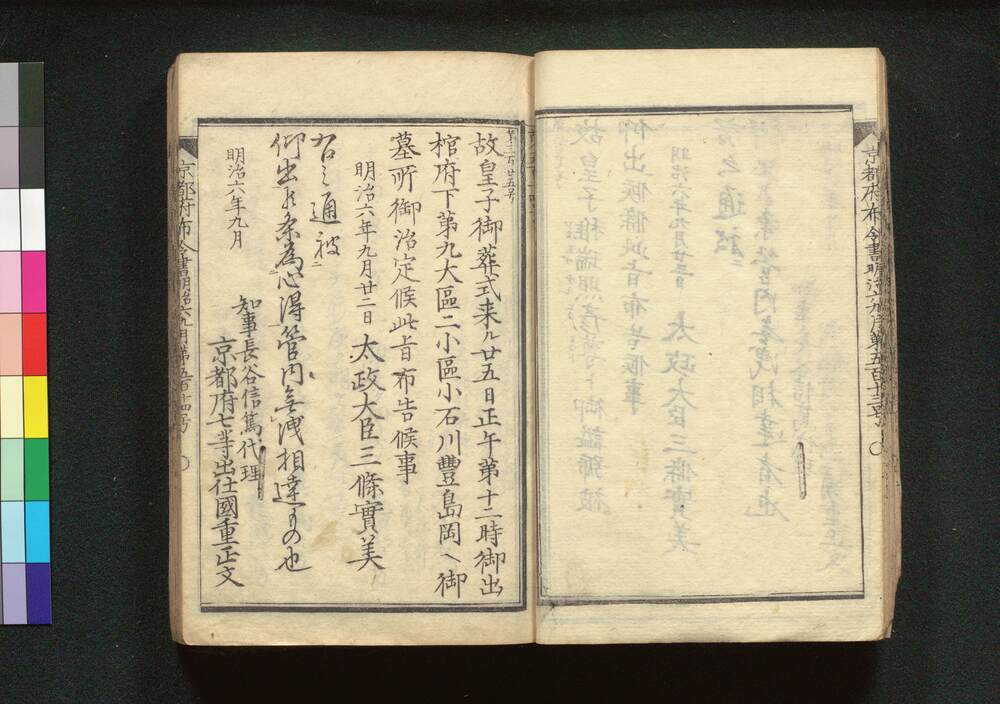 京都府布令書明治六九月第五百十三号
第三百廿五号
故皇子御葬式来ル廿五日正午第十二時御出
棺府下第九大區二小區小石川豐島岡ヘ御
墓所御治定候此旨布告候事
明治六年九月廿二日 太政大臣三條實美
右之通被
仰出候条為心得管内無洩相達もの也
明治六年九月
知事長谷信篤代理
京都府七等出仕國重正文
京都府布令書明治六九月第五百十四号